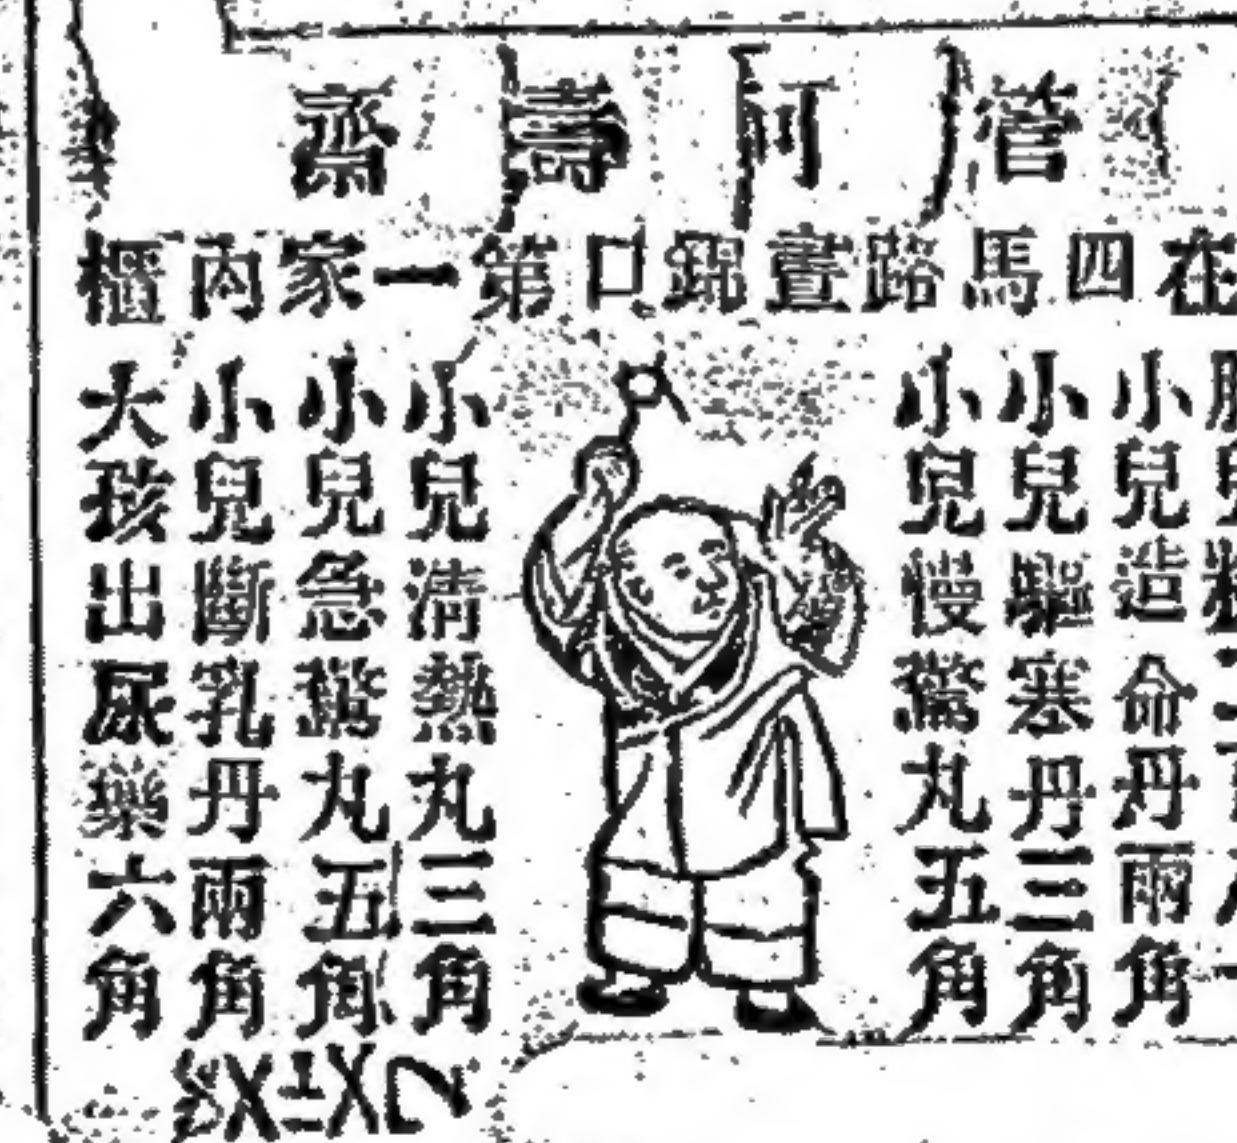 管阿壽齋
在四馬路晝錦口第一家內櫃
小兒造命丹兩角
小兒驅寒丹三角
小兒慢驚丸五角
小兒清熱丸三角
小兒急驚丸五角
小兒斷乳丹兩角
大孩出尿藥六角